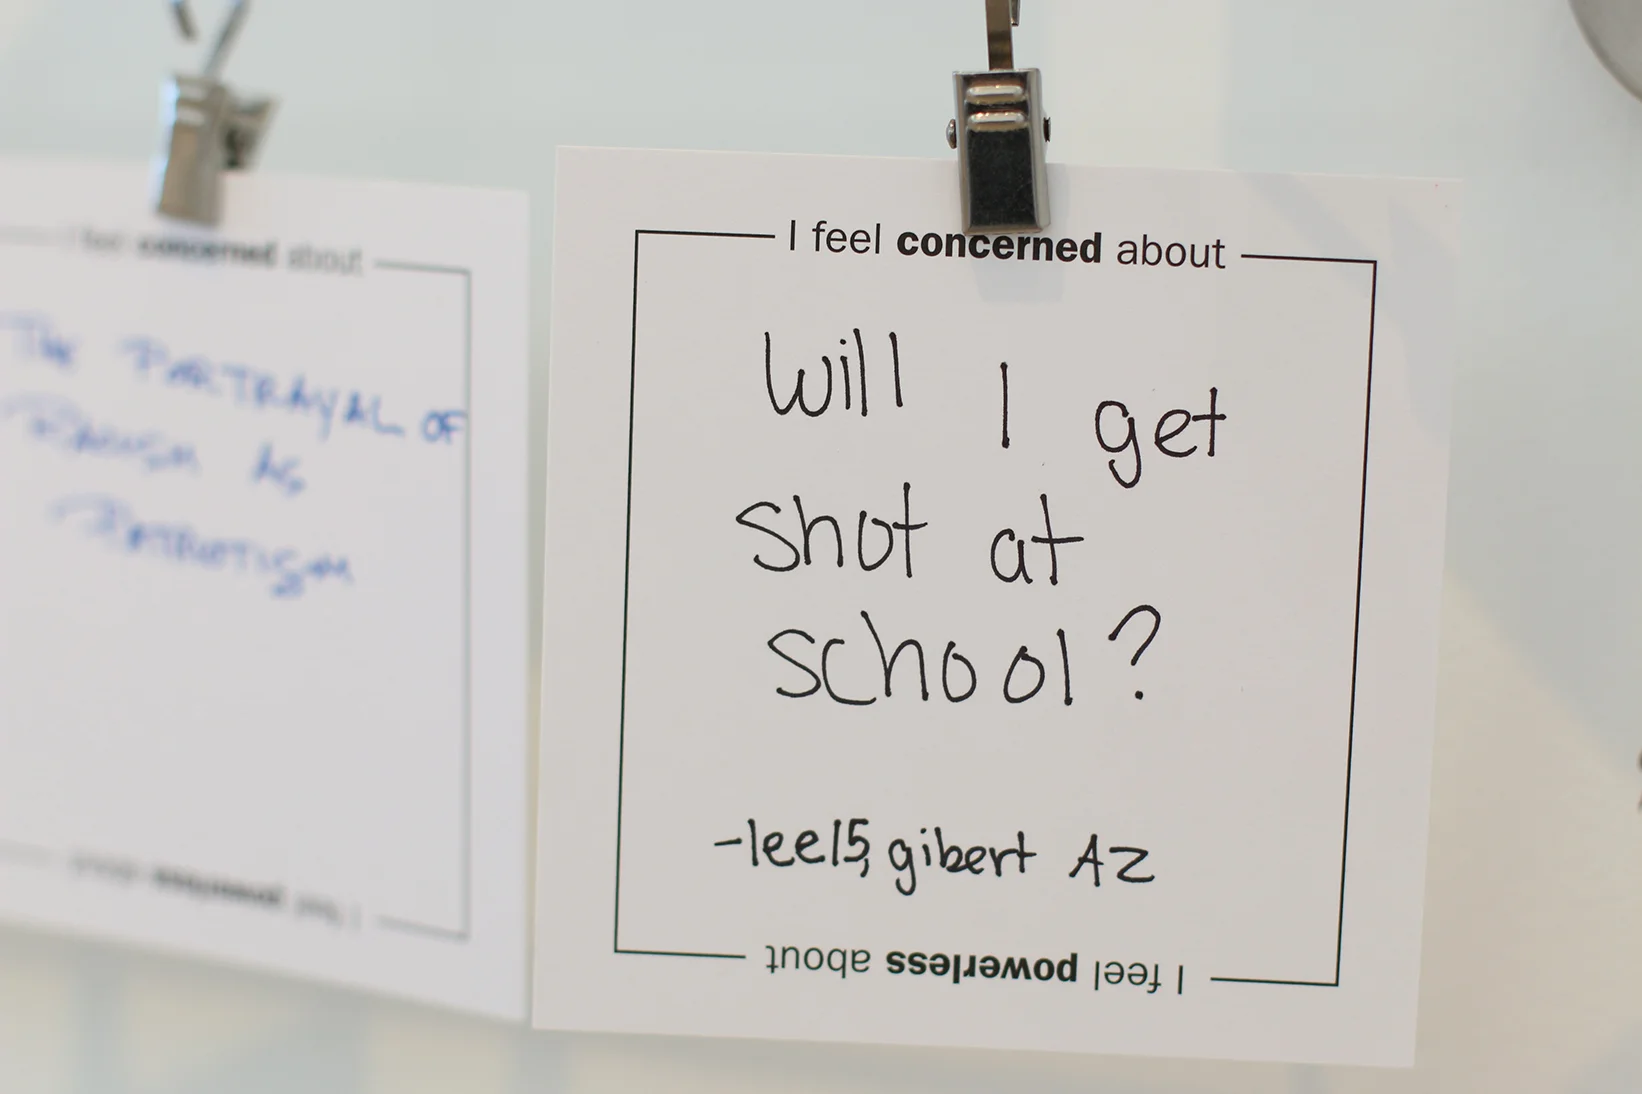 I feel concerned about
THE PORTRAYAL OF
RACISM AS
PATRIOTISM
I feel powerless about
I feel concerned about
Will I get
shot at
school?
-lee15, gibert AZ
I feel powerless about